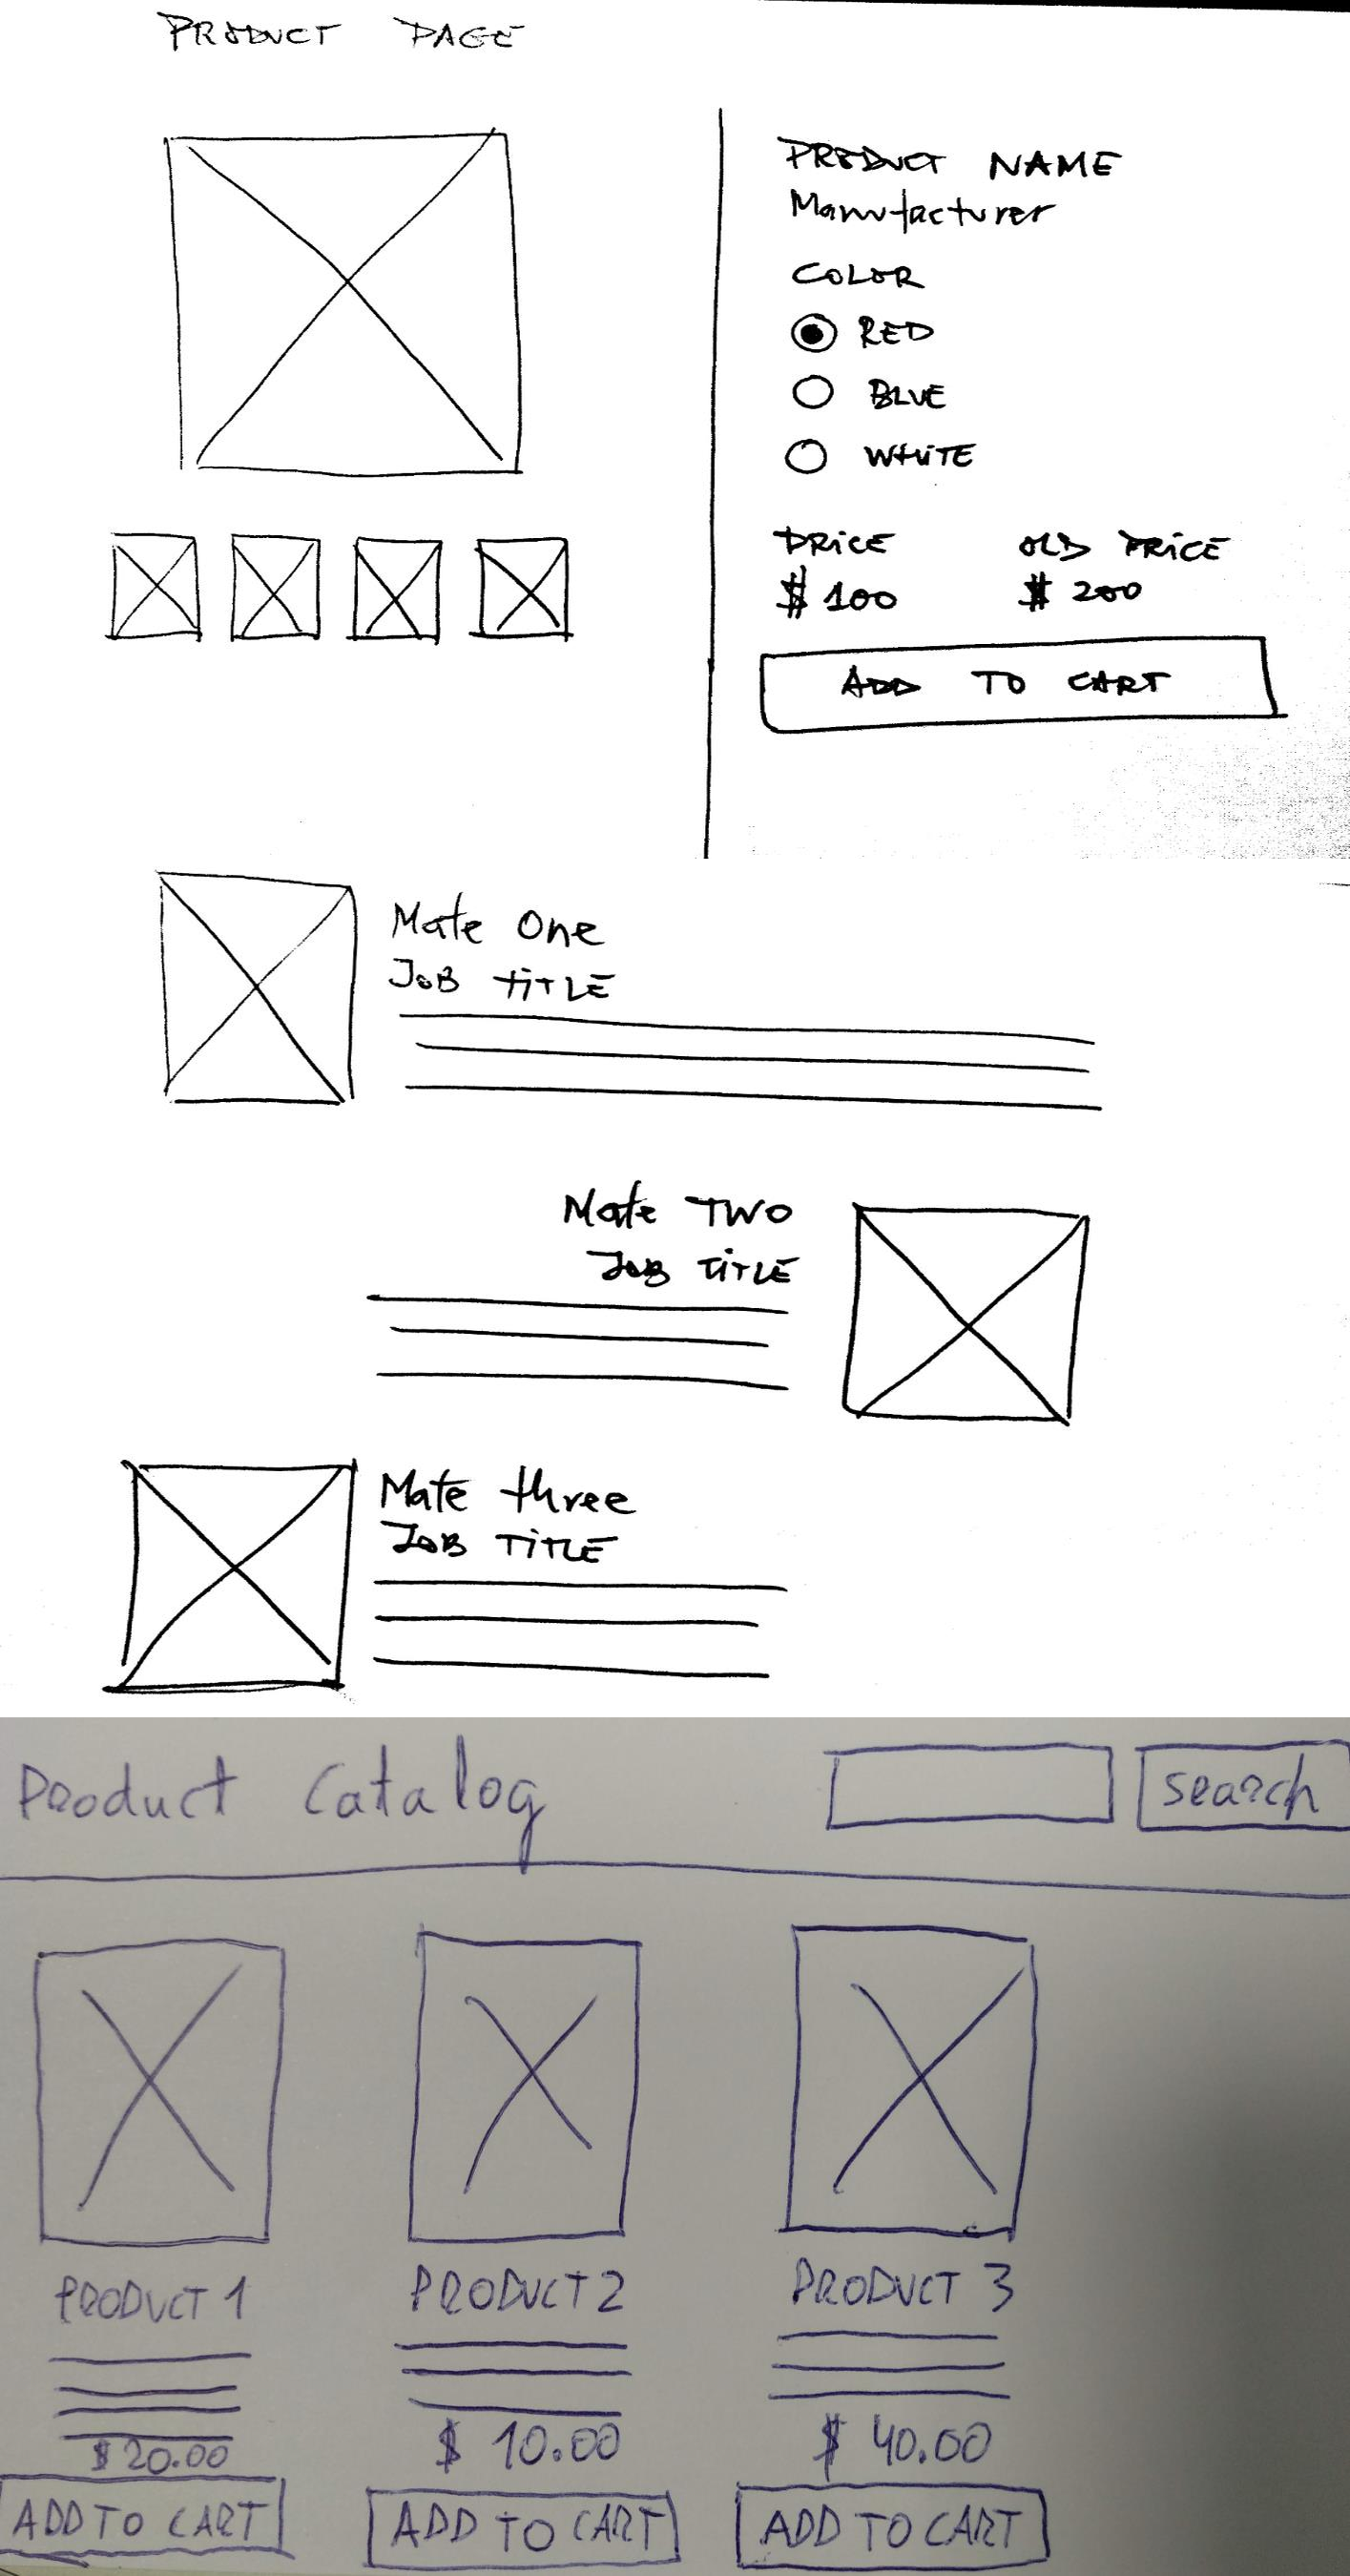 PRODUCT PAGE
PRODUCT NAME
Manufacturer
COLOR
RED
BLUE
WHITE
PRICE OLD PRICE
$ 100 $ 200
ADD TO CART
Mate One
JOB TITLE
Mate TWO
JOB TITLE
Mate three
JOB TITLE
Product Catalog search
PRODUCT 1 PRODUCT 2 PRODUCT 3
$ 20.00 $ 10.00 $ 40.00
ADD TO CART ADD TO CART ADD TO CART